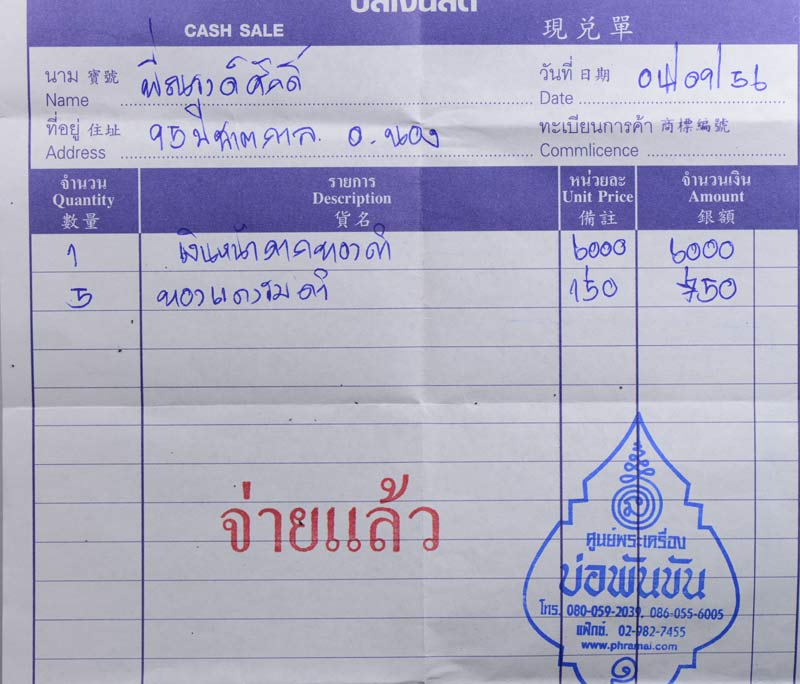 บิลเงินสด
CASH SALE 現兑單
นาม 寶號 Name
วันที่ 日期 Date 04/09/56
ที่อยู่ 住址 Address 95 อ. นอง
ทะเบียนการค้า 商標編號 Commlicence
จำนวน Quantity 數量 รายการ Description 貨名 หน่วยละ Unit Price 備註 จำนวนเงิน Amount 銀額
1 เงินหน้ากากทองคำ 6000 6000
5 ทองแดงรมดำ 150 750
จ่ายแล้ว
ศูนย์พระเครื่อง
บ่อพันขัน
โทร. 080-059-2039, 086-055-6005
แฟ็กซ์. 02-982-7455
www.phramai.com